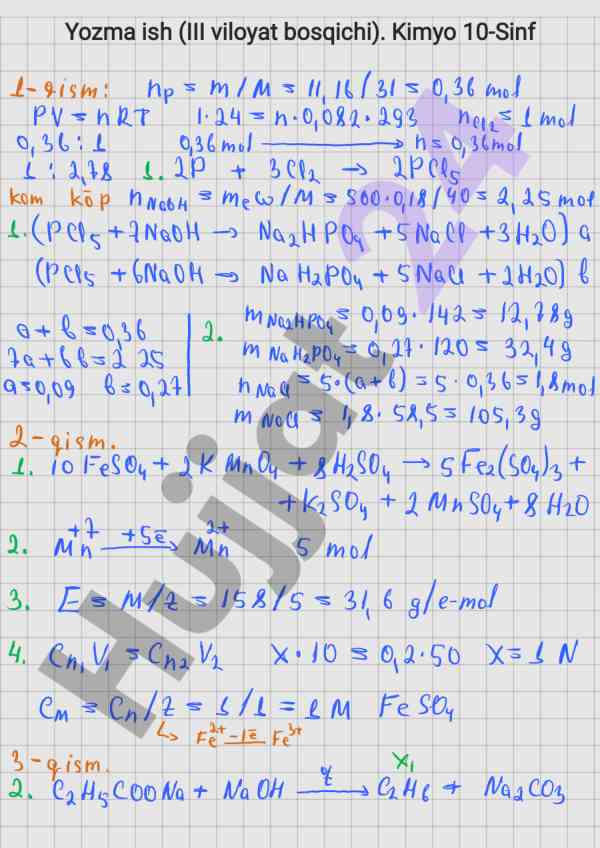 Yozma ish (III viloyat bosqichi). Kimyo 10-Sinf
1-qism: nP = m/M = 11,16/31 = 0,36 mol
PV = nRT 1·24 = n·0,082·293 nCl2 = 1 mol
0,36 : 1 0,36 mol → n = 0,36 mol
1 : 2,78 1. 2P + 3Cl2 → 2PCl5
kam ko̅p nNaOH = meω/M = 500·0,18/40 = 2,25 mol
1. (PCl5 + 7NaOH → Na2HPO4 + 5NaCl + 3H2O) a
(PCl5 + 6NaOH → NaH2PO4 + 5NaCl + 2H2O) b
a + b = 0,36
7a + 6b = 2 25
a = 0,09 b = 0,27
2. mNa2HPO4 = 0,09·142 = 12,78g
mNaH2PO4 = 0,27·120 = 32,4g
nNaCl = 5·(a+b) = 5·0,36 = 1,8mol
mNaCl = 1,8·58,5 = 105,3g
2-qism.
1. 10FeSO4 + 2KMnO4 + 8H2SO4 → 5Fe2(SO4)3 +
+ K2SO4 + 2MnSO4 + 8H2O
2. Mn+7 +5ē → Mn2+ 5 mol
3. E = M/z = 158/5 = 31,6 g/e-mol
4. Cn1V1 = Cn2V2 X·10 = 0,2·50 X = 1 N
CM = Cn/z = 1/1 = 1M FeSO4
↳ Fe2+ -1ē Fe3+
3-qism.
X1
2. C2H5COONa + NaOH t→ C2H6 + Na2CO3
Hujjat 24